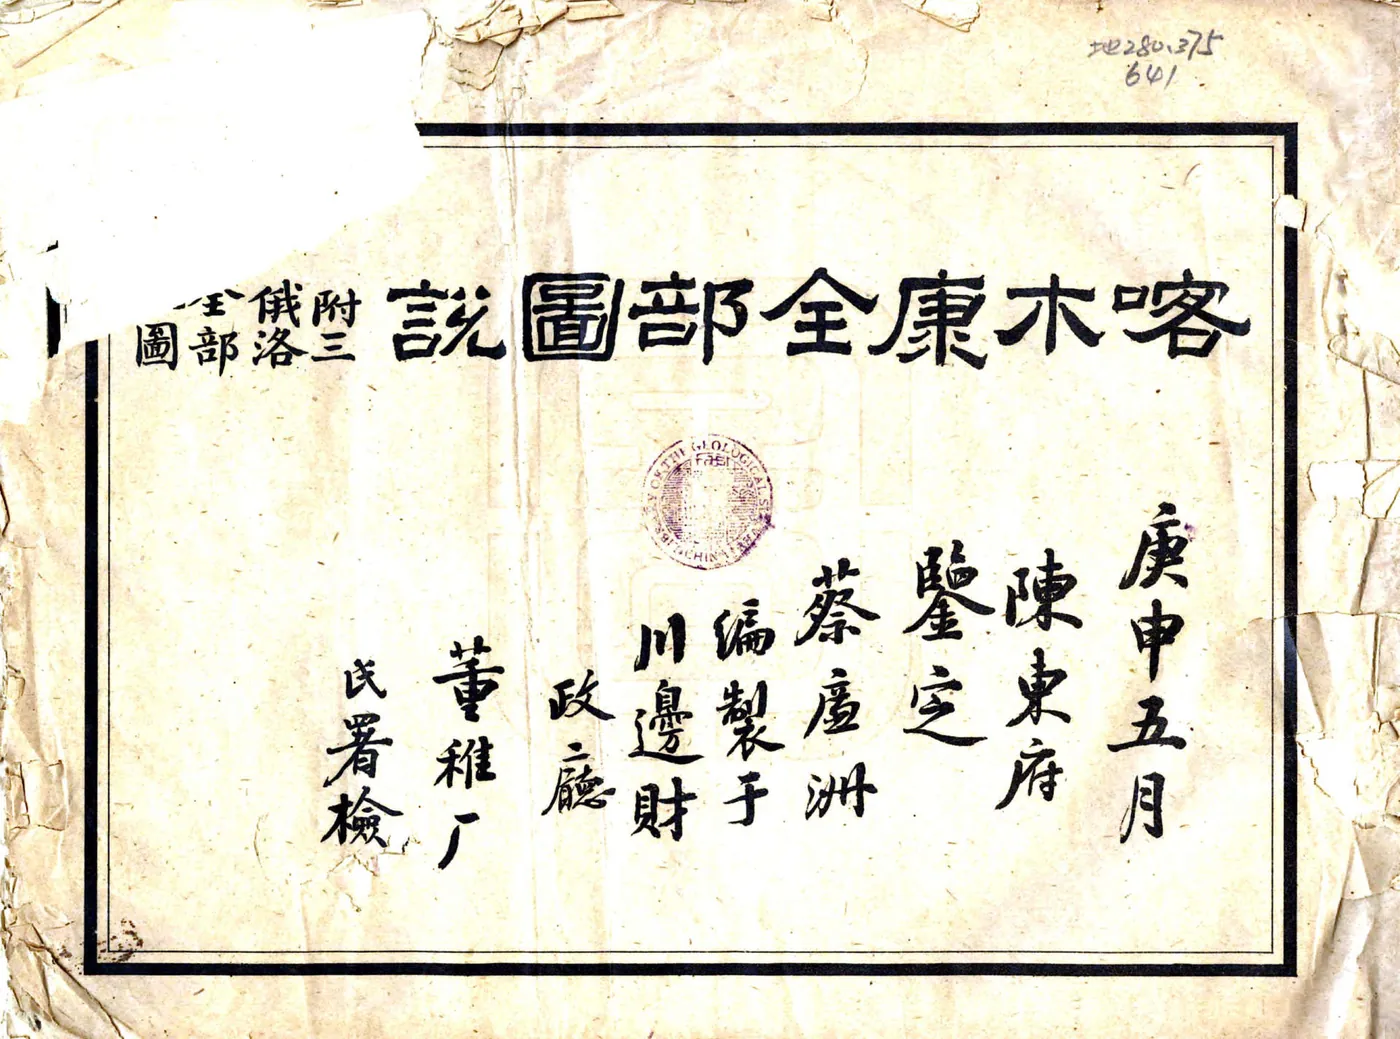 地280.375
641
喀木康全部圖說
附三
俄洛
全部
圖
庚申五月
陳東府
鑒定
蔡廬洲
編製于
川邊財
政廳
董稚厂
民署檢
OF THE GEOLOGICAL S
CHINA